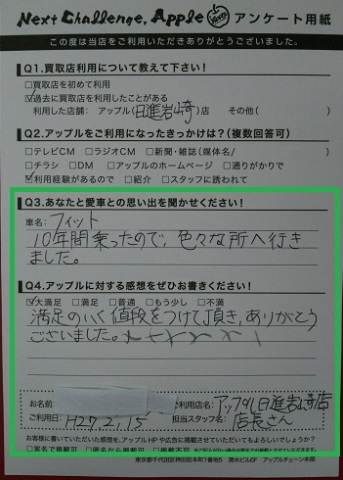 Next Challenge, Apple アンケート用紙
この度は当店をご利用いただきありがとうございました。
Q1.買取店利用について教えて下さい!
□買取店を初めて利用
☑過去に買取店を利用したことがある
利用した店舗: アップル(日進岩崎)店 その他( )
Q2.アップルをご利用になったきっかけは?(複数回答可)
□テレビCM □ラジオCM □新聞・雑誌(媒体名/ )
□チラシ □DM □アップルのホームページ □通りがかりで
☑利用経験があるので □紹介 □スタッフに誘われて
Q3.あなたと愛車との思い出を聞かせください!
車名: フィット
10年間乗ったので、色々な所へ行き
ました。
Q4.アップルに対する感想をぜひお書きください!
☑大満足 □満足 □普通 □もう少し □不満
満足のいく値段をつけて頂き、ありがとう
ございました。
お名前 ご利用店名: アップル日進岩崎店
ご利用日: H27.2.15 担当スタッフ名: 店長さん
お客様に書いていただいた感想を、アップルHPや広告に掲載させていただいてもよろしいでしょうか?
□実名で掲載可 □匿名なら掲載可 □掲載不可
東京都千代田区神田松永町1番地5 清水ビル6F アップルチェーン本部